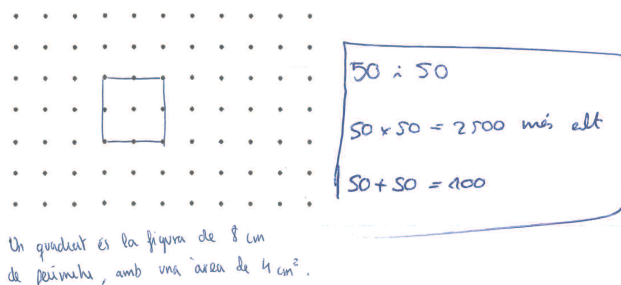 Un quadrat és la figura de 8 cm
de perímetre, amb una àrea de 4 cm².
50 i 50
50 x 50 = 2500 més alt
50 + 50 = 100